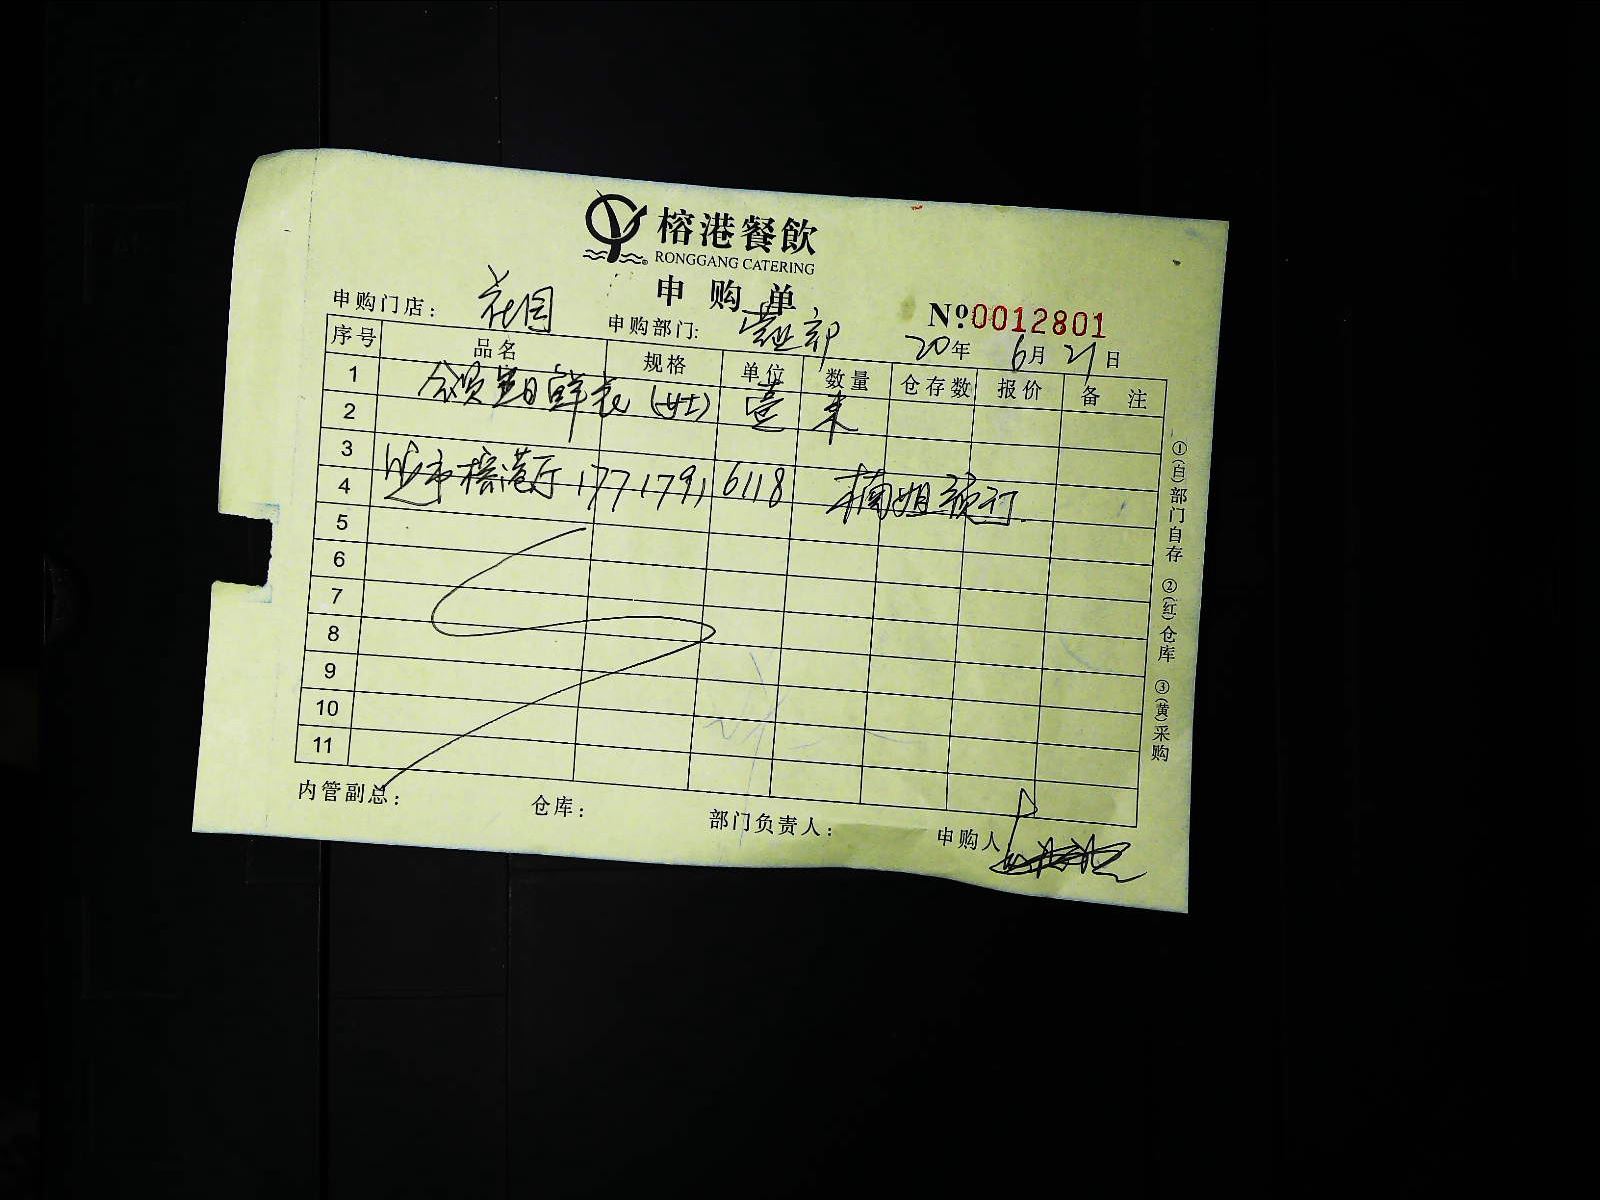 榕港餐飲
RONGGANG CATERING
申购单
申购门店： 花园 申购部门: 营业部 №0012801
20年 6月 21日
序号 品名 规格 单位 数量 仓存数 报价 备注
1 生日鲜花 (女士) 壹 束
2
3
4 沙市榕港厅 17717916118 楠姐预订
5
6
7
8
9
10
11
内管副总： 仓库： 部门负责人： 申购人
①(白)部门自存 ②(红)仓库 ③(黄)采购